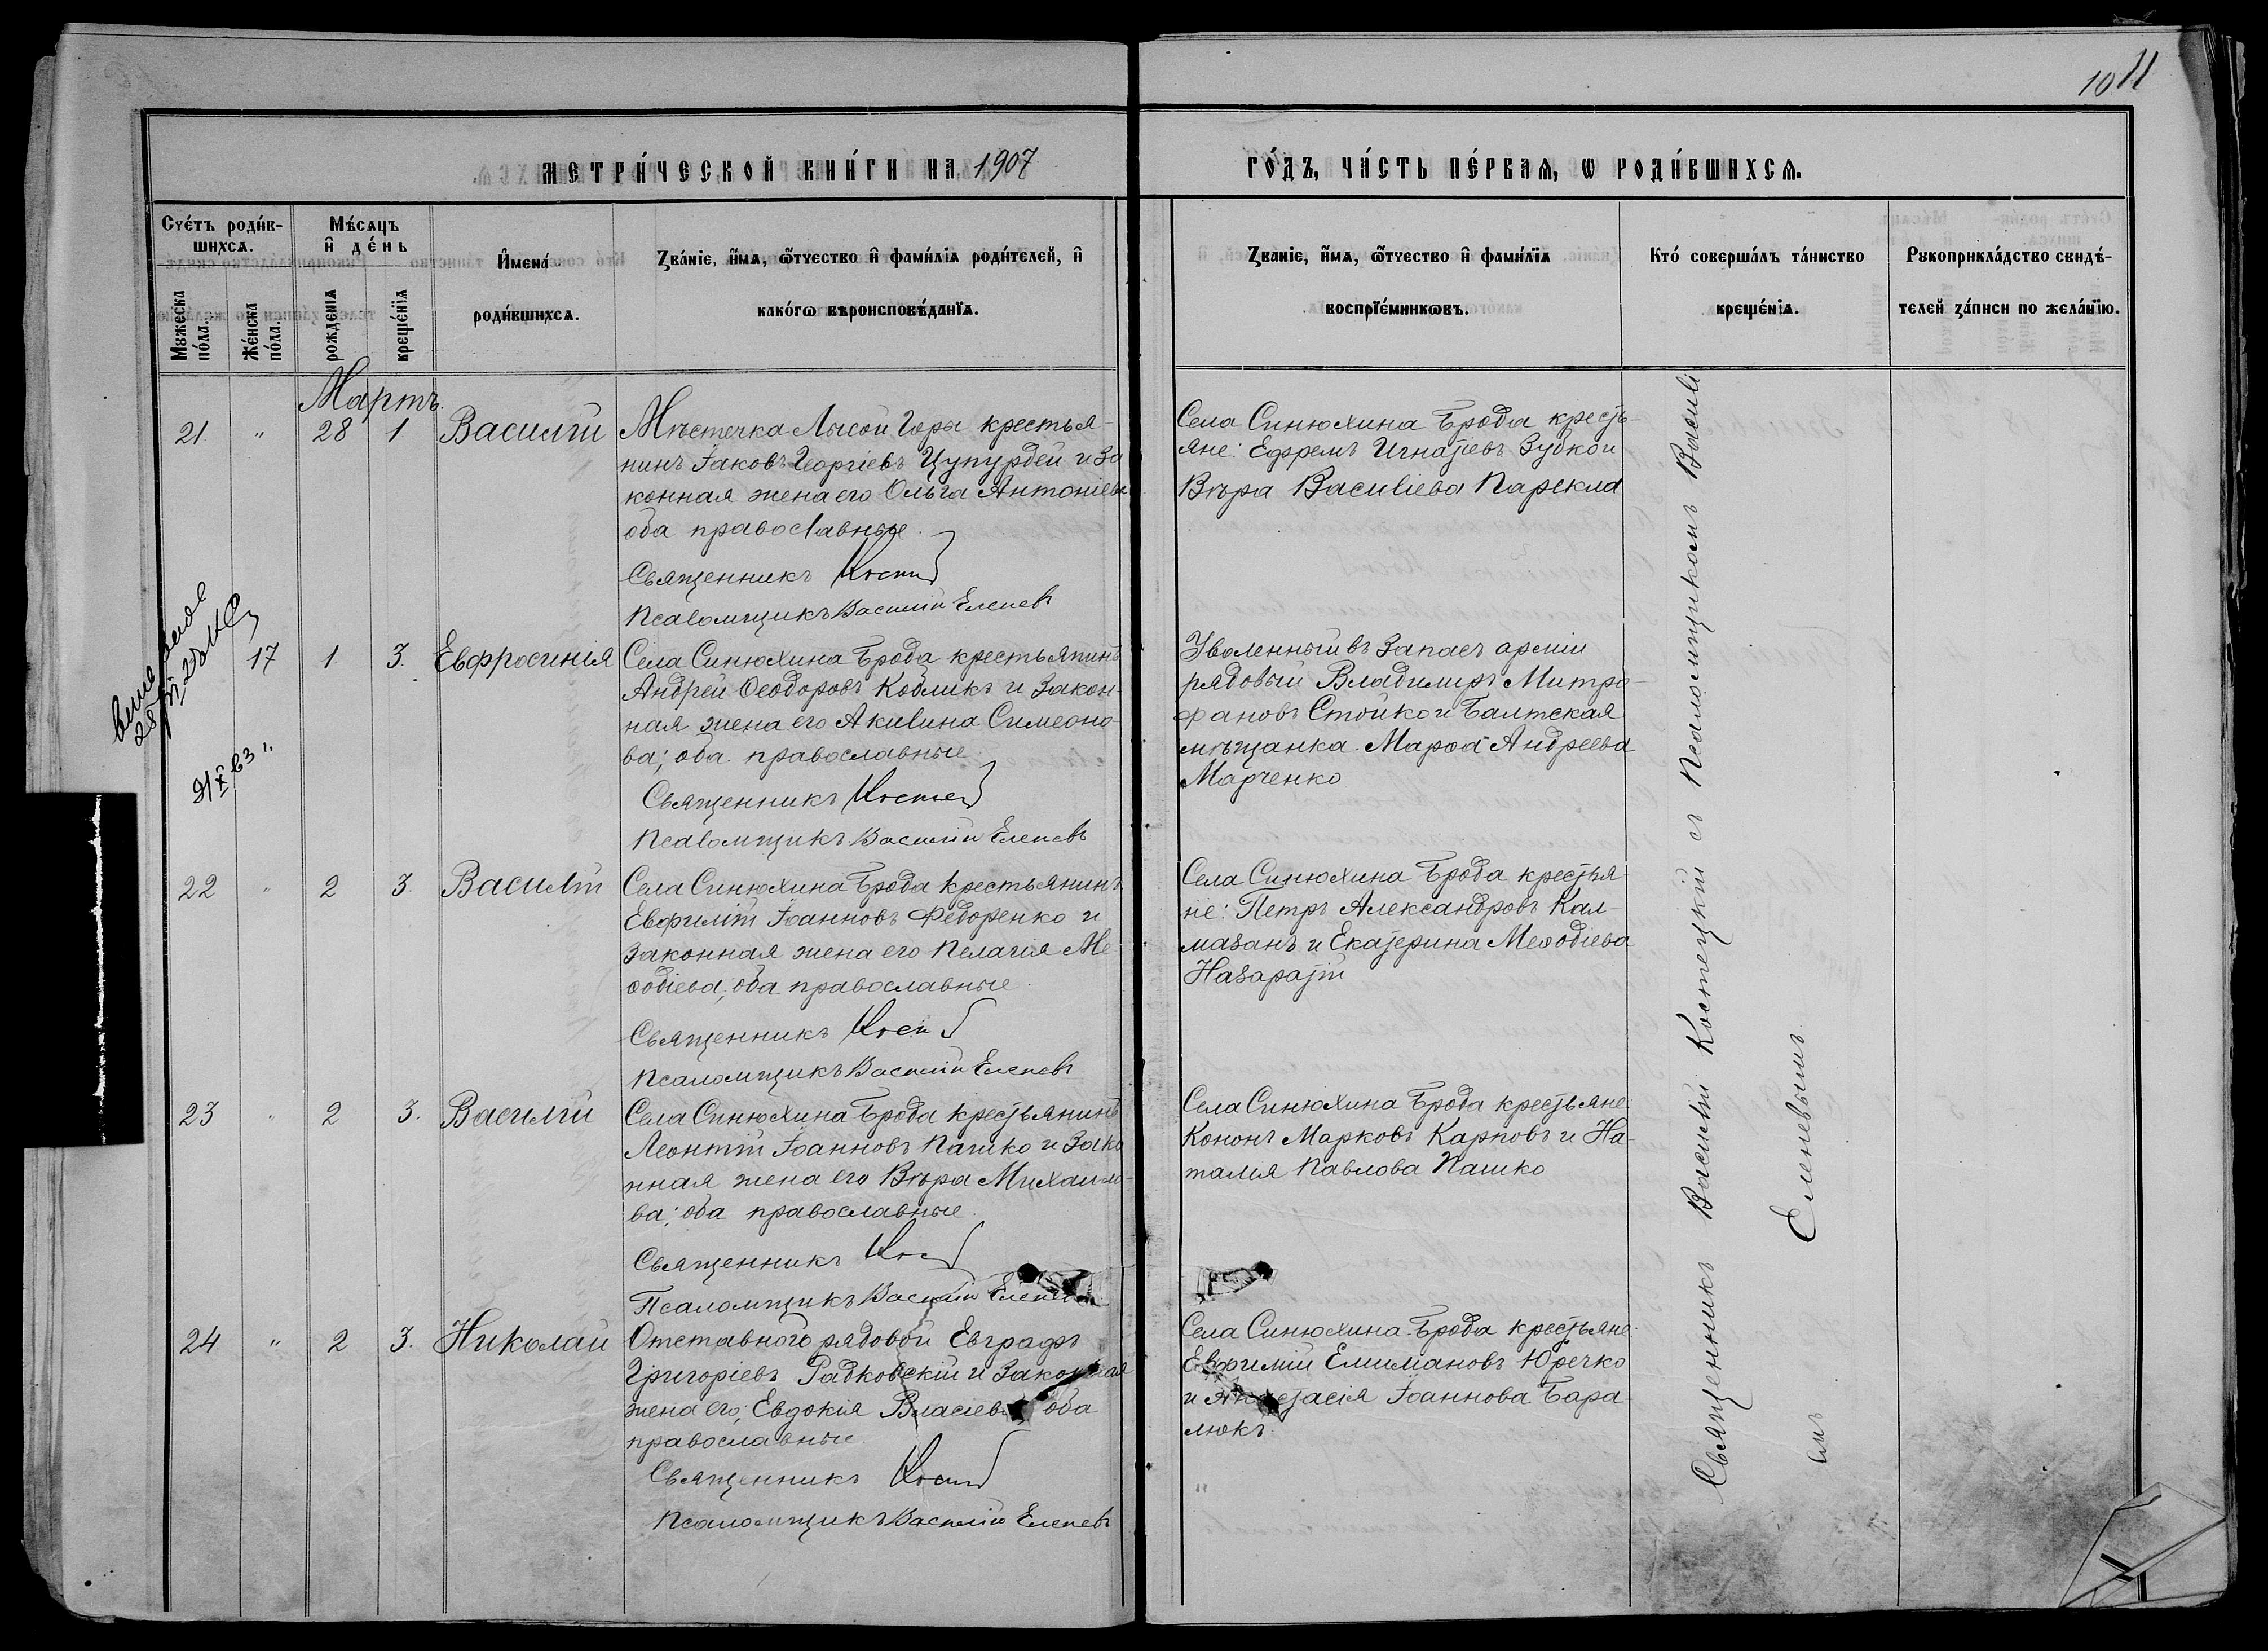 10 11
МЕТРИ́ЧЕСКОЙ КНИ́ГИ НА 1907
ГО́ДЪ, ЧА́СТЬ ПЕ́РВАѦ, Ѡ РОДИ́ВШИХСѦ.
Счéтъ роди́в-
шихсѧ.
Мꙋ́жеска по́ла.
Же́нска по́ла.
Мѣ́сѧцъ
и҆ де́нь
рожде́нїѧ
креще́нїѧ
И҆мена̀
роди́вшихсѧ.
Зва́нїе, и҆́мѧ, ѻ҆́тчество и҆ фами́лїѧ роди́телей, и҆
како́гѡ вѣроисповѣ́данїѧ.
Зва́нїе, и҆́мѧ, ѻ҆́тчество и҆ фами́лїѧ
воспрїе́мникѡвъ.
Кто́ соверша́лъ та́инство
креще́нїѧ.
Рꙋкоприкла́дство свидѣ́-
телей за́писи по жела́нїю.
Мартъ.
21 " 28 1 Василій
Мѣстечка Лысой Горы крестья-
нинъ Іаковъ Георгіевъ Цупурдей и за
конная жена его Ольга Антоніева
оба православные.
Священникъ
Псаломщикъ Василій Еленевъ
Села Синюхина Брода кресть-
яне: Ефремъ Игнатіевъ Зубко и
Вѣра Василіева Парекла
17 1 3. Евфросинія
Села Синюхина Брода крестьянинъ
Андрей Ѳеодоровъ Кобликъ и закон-
ная жена его Акилина Симеоно-
ва; оба православные
Священникъ
Псаломщикъ Василій Еленевъ
Уволенный въ запасъ арміи
рядовый Владимиръ Митро-
фановъ Стойко и Балтская
мѣщанка Марѳа Андреева
Марченко
22 " 2 3. Василій
Села Синюхина Брода крестьянинъ
Евфимій Іоанновъ Федоренко и
законная жена его Пелагія Ме
ѳодіева, оба православные.
Священникъ
Псаломщикъ Василій Еленевъ
Села Синюхина Брода крестья-
не: Петръ Александровъ Кал-
мазанъ и Екатерина Меѳодіева
Назаратій
23 " 2 3. Василій
Села Синюхина Брода крестьянинъ
Леонтій Іоанновъ Пашко и зако
нная жена его Вѣра Михаило-
ва; оба православные.
Священникъ
Псаломщикъ Василій Еленевъ
Села Синюхина Брода крестьяне:
Кононъ Марковъ Карповъ и На-
талія Павлова Пашко
24 " 2 3. Николай
Отставного рядовой Евграфъ
Григоріевъ Радковскій и законная
жена его; Евдокія Власіева, оба
православные
Священникъ
Псаломщикъ Василій Еленевъ
Села Синюхина Брода крестьяне:
Евфимій Ельмановъ Юречко
и Анастасія Іоаннова Бара-
люкъ
Священникъ Василій Костецкій съ Псаломщикомъ Василі
емъ Еленевымъ